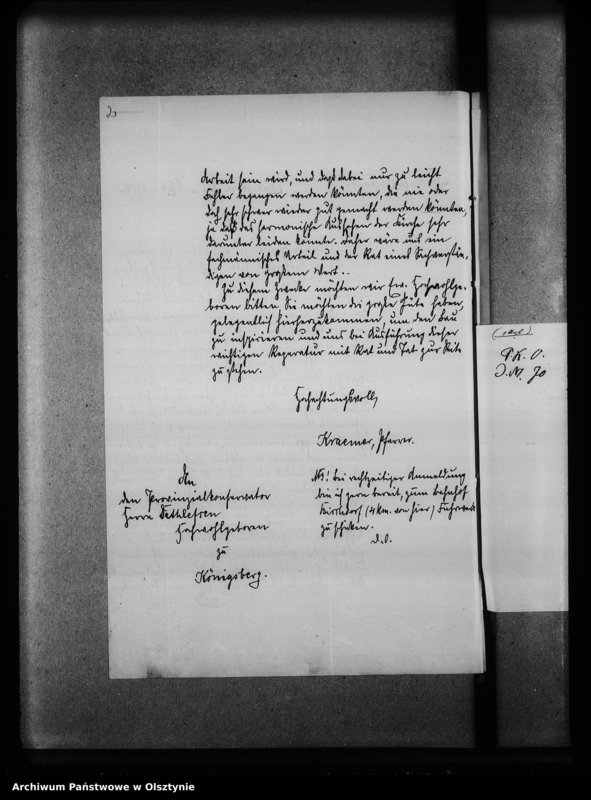 20
Arbeit sein wird, und daß dabei nur zu leicht
Fehler begangen werden könnten, die nie oder
doch sehr schwer wieder gut gemacht werden könnten,
ja daß das harmonische Aussehen der Kirche sehr
darunter leiden könnte. Daher wäre uns ein
fachmännisches Urteil und der Rat eines Sachverstän-
digen von großem Wert.
Zu diesem Zwecke möchten wir Ew. Hochwohlge-
boren bitten, Sie möchten die große Güte haben,
gelegentlich hierherzukommen, um den Bau
zu inspizieren und uns bei Ausführung dieser
wichtigen Reparatur mit Rat und Tat zur Seite
zu stehen.
Hochachtungsvoll,
Kraemer, Pfarrer.
An
den Provinzialkonservator
Herrn Dethlefsen
Hochwohlgeboren
zu
Königsberg.
NB! Bei rechtzeitiger Anmeldung
bin ich gern bereit, zum Bahnhof
(4 km. von hier) Fuhrwerk
zu schicken.
D. O.
P. K. O.
Archiwum Państwowe w Olsztynie